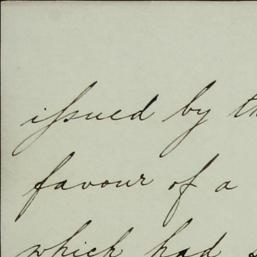 issued by
favour of a
which had